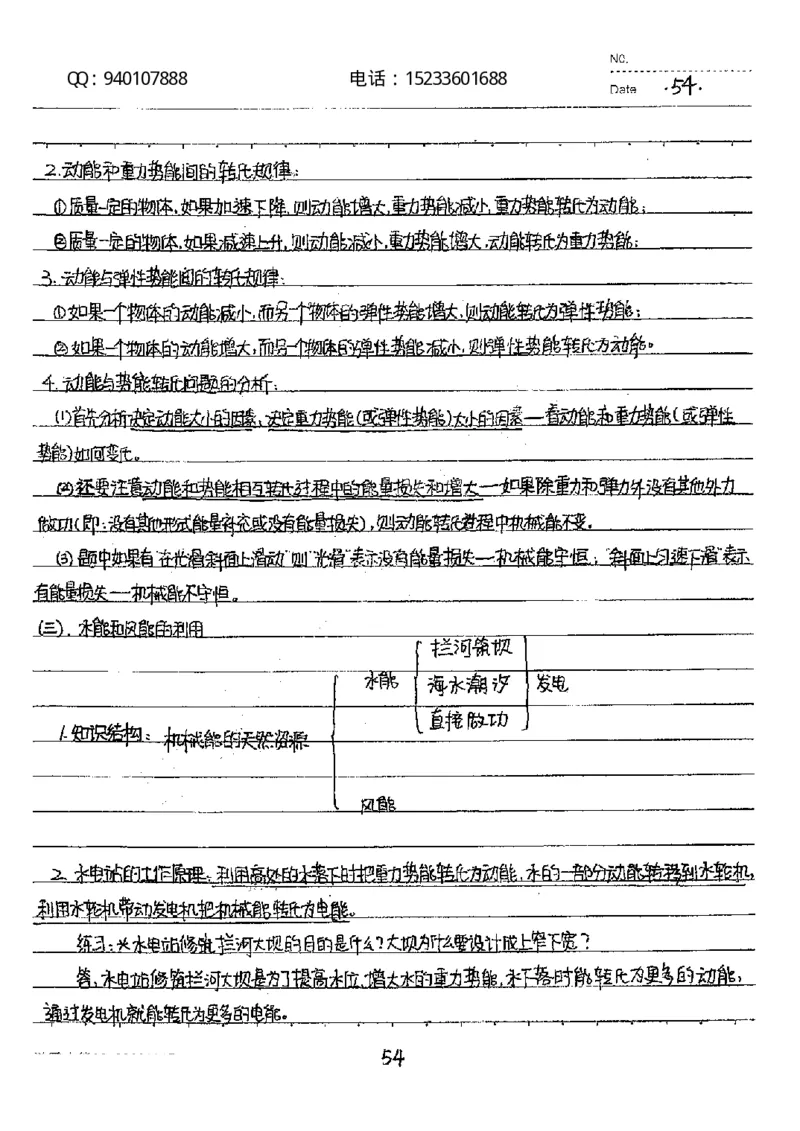 QQ：940107888 电话：15233601688
No.
Date .54.
2.动能和重力势能间的转化规律：
①质量一定的物体，如果加速下降，则动能增大，重力势能减小，重力势能转化为动能；
②质量一定的物体，如果减速上升，则动能减小，重力势能增大，动能转化为重力势能；
3.动能与弹性势能间的转化规律：
①如果一个物体的动能减小，而另一个物体的弹性势能增大，则动能转化为弹性势能；
②如果一个物体的动能增大，而另一个物体的弹性势能减小，则弹性势能转化为动能。
4.动能与势能转化问题的分析：
(1)首先分析决定动能大小的因素，决定重力势能(或弹性势能)大小的因素——看动能和重力势能(或弹性
势能)如何变化。
(2)还要注意动能和势能相互转化过程中的能量损失和增大——如果除重力和弹力外没有其他外力
做功(即：没有其他形式能量补充或没有能量损失)，则动能转化势程中机械能不变。
(3)题中如果有"在光滑斜面上滑动"则"光滑"表示没有能量损失——机械能守恒；"斜面上匀速下滑"表示
有能量损失——机械能不守恒。
(三).水能和风能的利用
拦河筑坝
水能 海水潮汐 发电
直接做功
1.知识结构：机械能的天然资源
风能
2.水电站的工作原理：利用高处的水落下时把重力势能转化为动能，水的一部分动能转移到水轮机，
利用水轮机带动发电机把机械能转化为电能。
练习：水电站修筑拦河大坝的目的是什么？大坝为什么要设计成上窄下宽？
答：水电站修筑拦河大坝是为了提高水位、增大水的重力势能，水下落时能转化为更多的动能，
通过发电机就能转化为更多的电能。
54